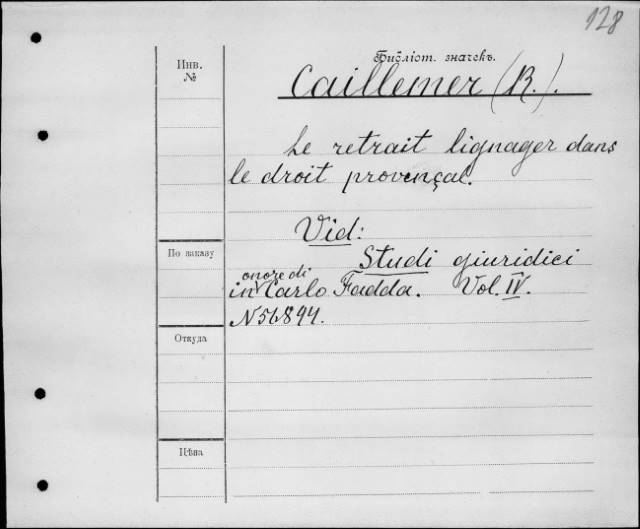 128
Инв.
№
Библіот. значекъ.
Caillemer (R.).
Le retrait lignager dans
le droit provençal.
Vid:
По заказу
Studi giuridici
onore di
in Carlo Fadda. Vol. IV.
N 56894.
Откуда
Цѣна